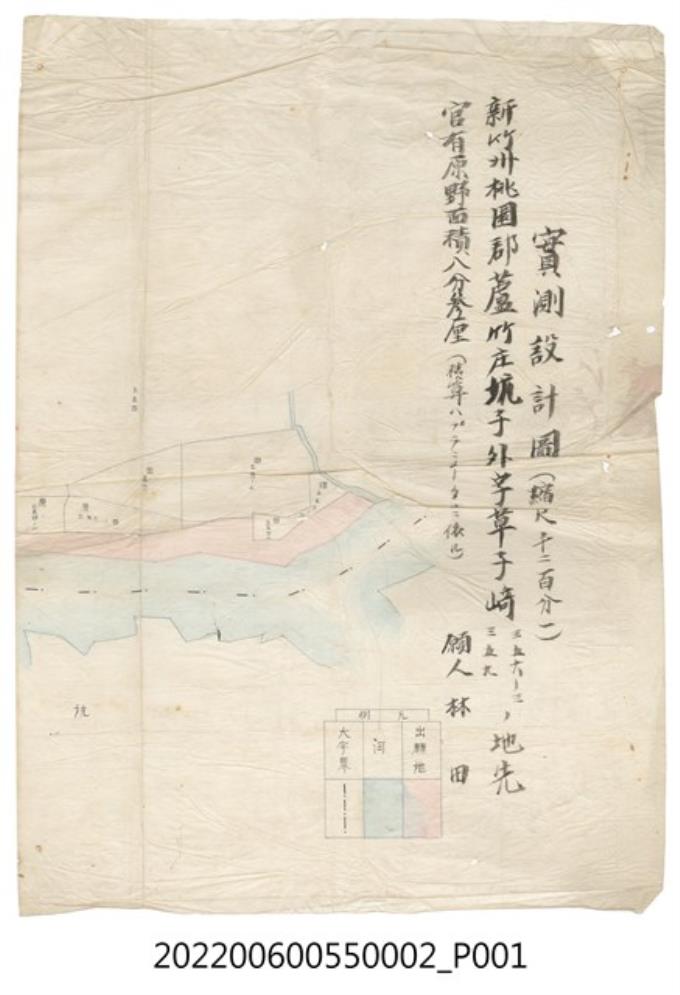 實測設計圖（縮尺千二百分一）
新竹州桃園郡蘆竹庄坑子外字草子崎
三五六ノ三
三五九
ノ地先
官有原野面積八分參厘（積算ハプラニメータニ依ル）
願人 林 田
凡例
出願地
河
大字界
坑
202200600550002_P001